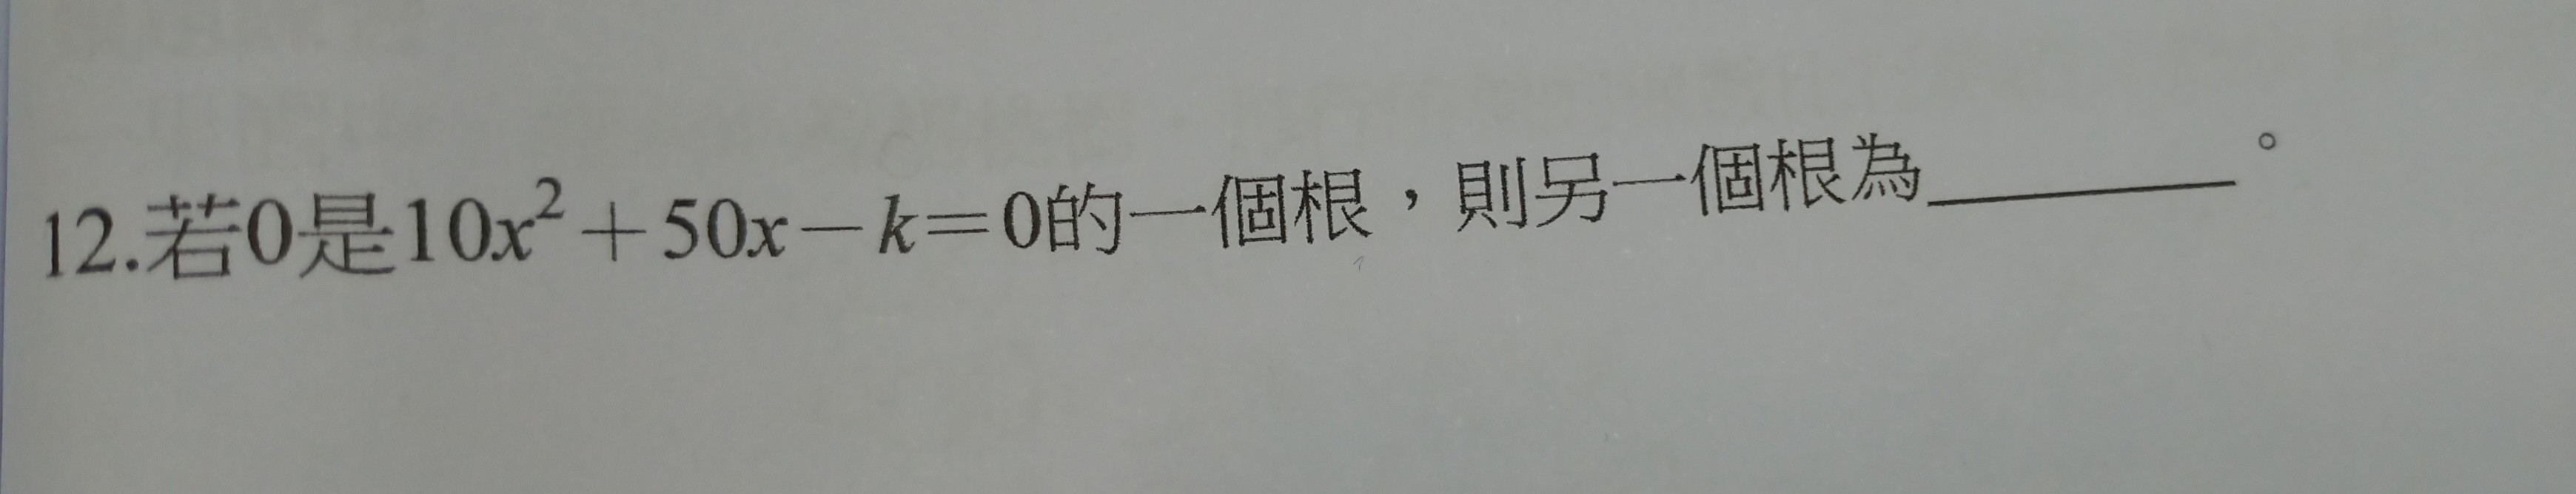 12.若0是10x²+50x-k=0的一個根，則另一個根為________。